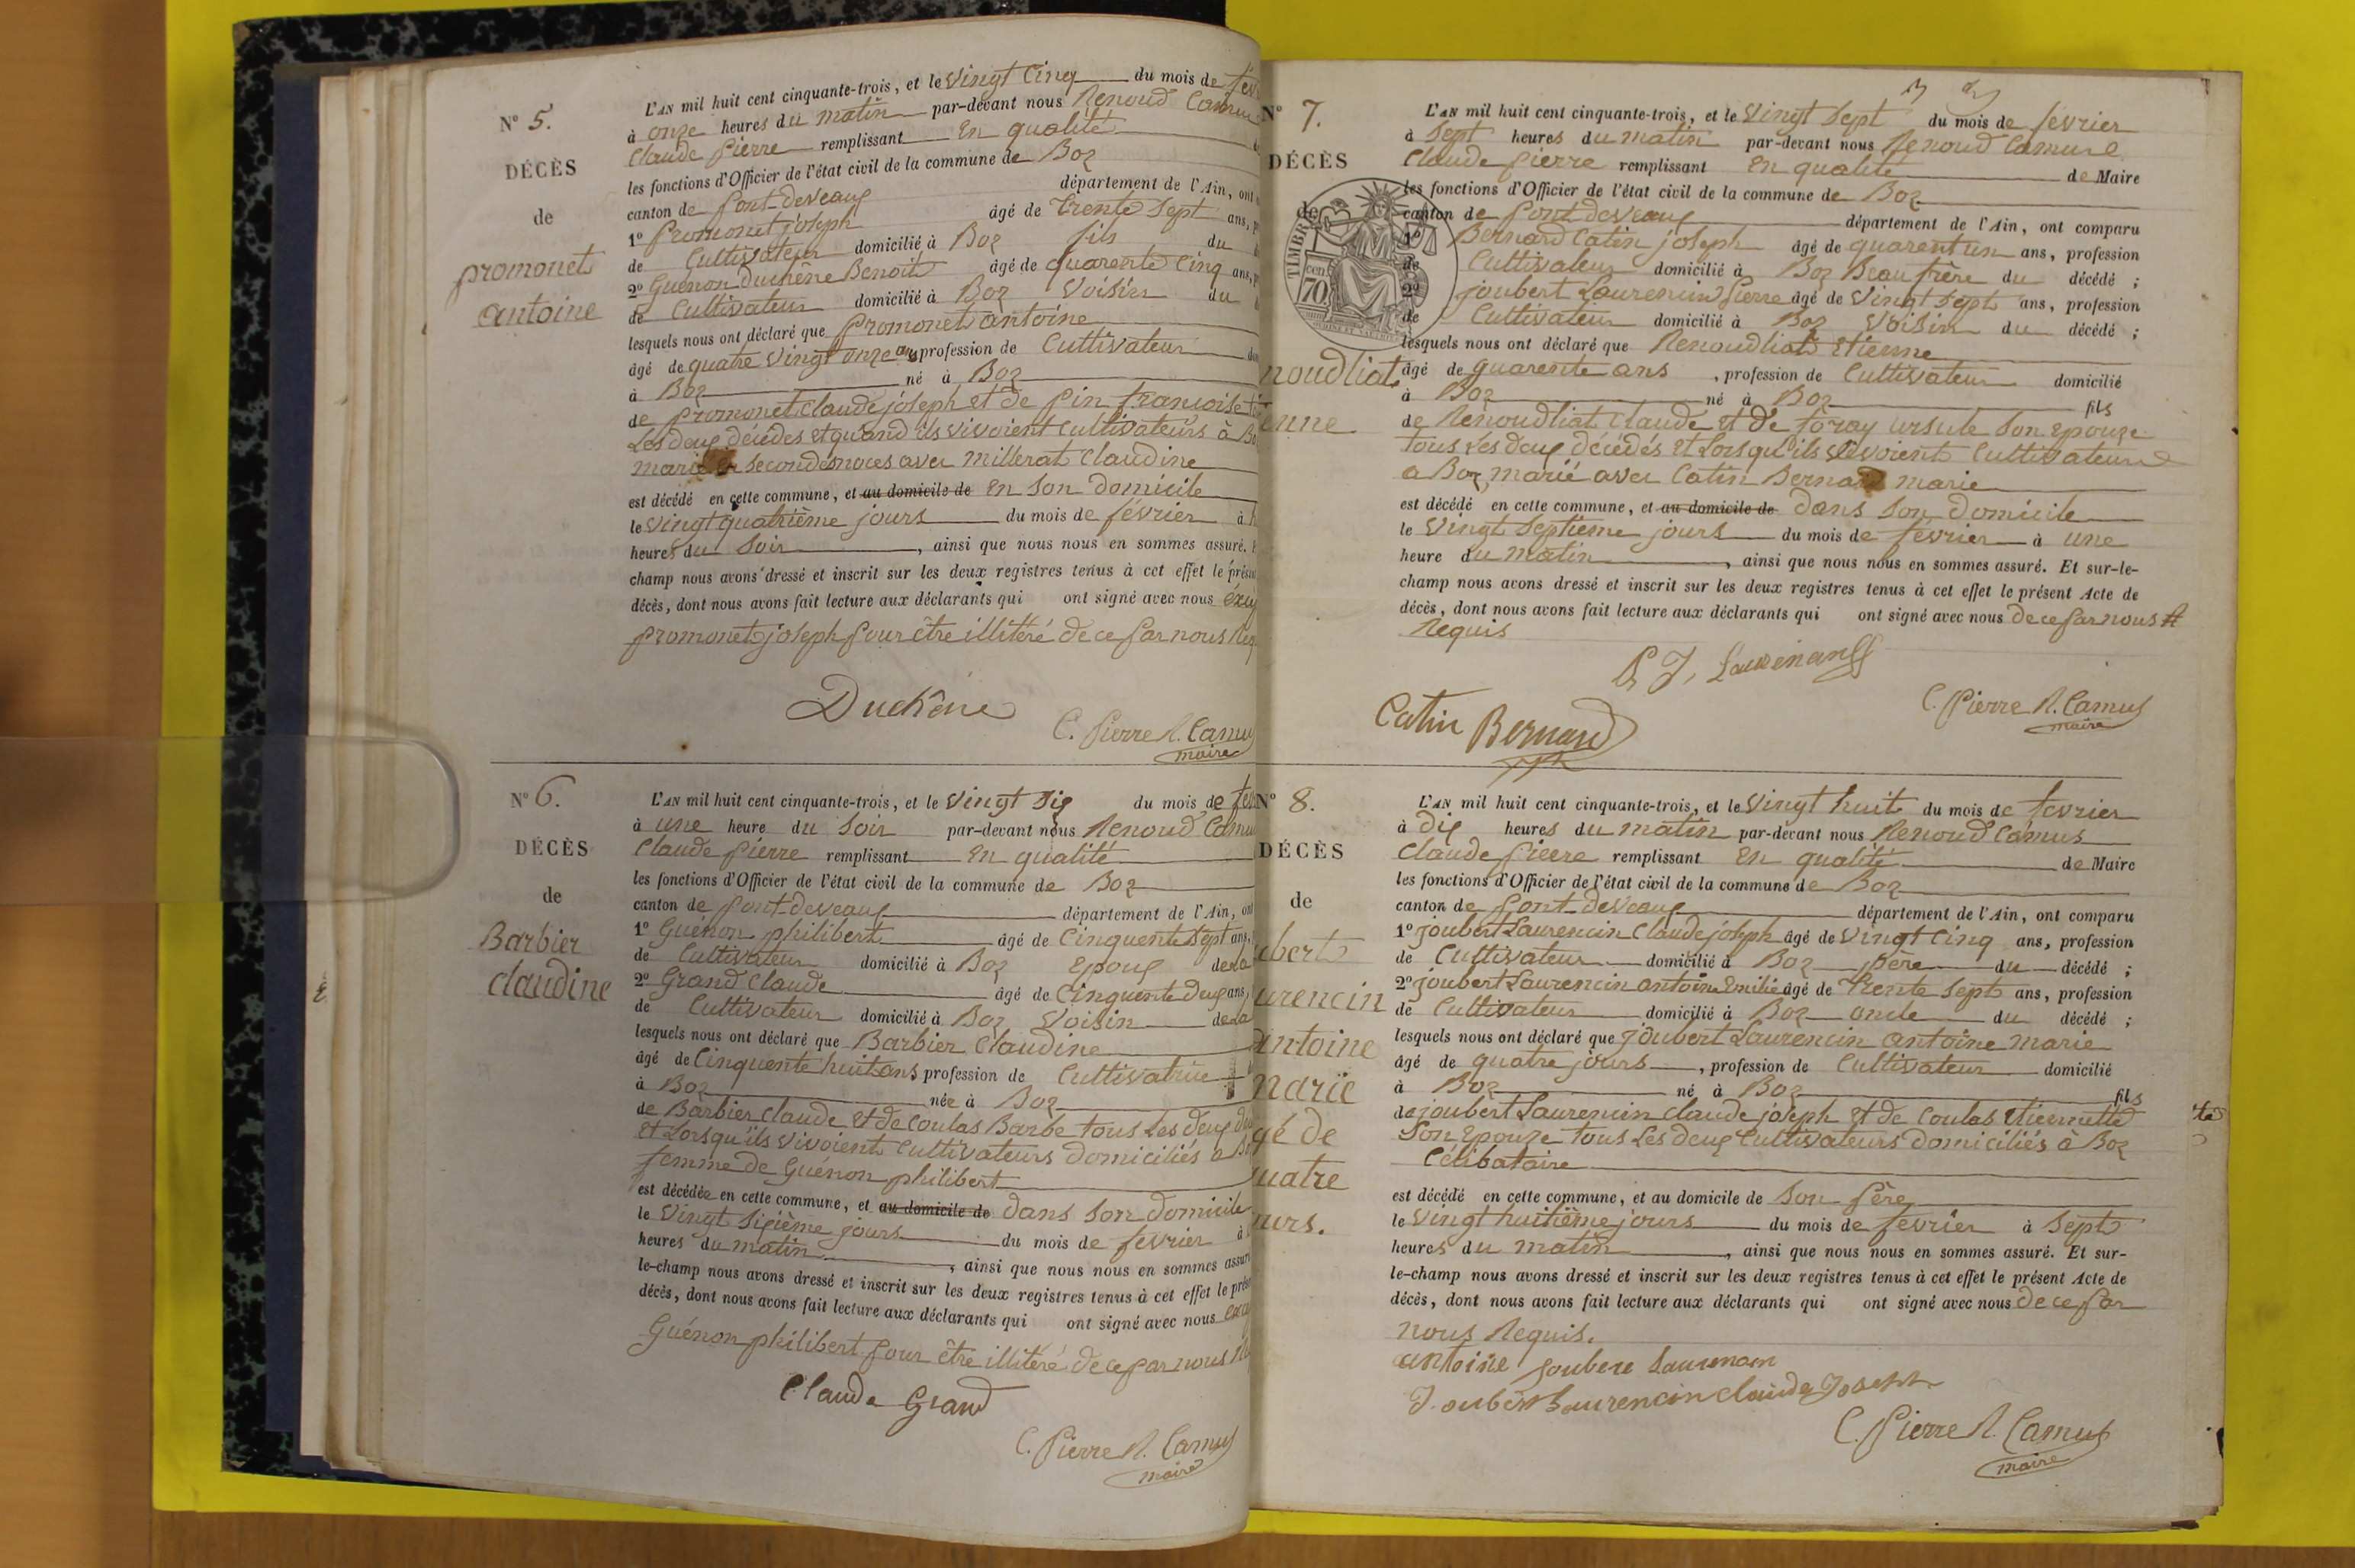 N° 5.
DÉCÈS
de
promonet
antoine
L'AN mil huit cent cinquante-trois, et le vingt cinq du mois de fev
à onze heures du matin par-devant nous Renoud Camu
Claude pierre remplissant en qualité
les fonctions d'Officier de l'état civil de la commune de Boz
canton de pont-deveaux département de l'Ain, ont
1° promonet joseph âgé de trente sept ans,
de Cultivateur domicilié à Boz fils du
2° Guénon duchêne Benoit âgé de quarente cinq ans,
de Cultivateur domicilié à Boz voisin du
lesquels nous ont déclaré que promonet antoine
âgé de quatre vingt onze ans profession de Cultivateur
à Boz né à Boz
de promonet Claude joseph et de pin françoise
Les deux décédes et quand ils vivoient cultivateurs à Bo
marié en secondes noces avec millerat Claudine
est décédé en cette commune, et au domicile de en son domicile
le vingt quatrième jours du mois de février à
heures du soir, ainsi que nous nous en sommes assuré.
champ nous avons dressé et inscrit sur les deux registres tenus à cet effet le prése
décès, dont nous avons fait lecture aux déclarants qui ont signé avec nous
promonet joseph pour être illitéré de ce par nous Req
Duchêne
C. Pierre R. Camu
maire
N° 6.
DÉCÈS
de
Barbier
Claudine
L'AN mil huit cent cinquante-trois, et le vingt six du mois de fev
à une heure du soir par-devant nous Renoud Camu
Claude pierre remplissant en qualité
les fonctions d'Officier de l'état civil de la commune de Boz
canton de pont-deveaux département de l'Ain, ont
1° Guénon philibert âgé de cinquente sept ans,
de Cultivateur domicilié à Boz epoux de la
2° Grand Claude âgé de cinquente deux ans,
de Cultivateur domicilié à Boz voisin de la
lesquels nous ont déclaré que Barbier Claudine
âgé de cinquente huit ans profession de Cultivatrice
à Boz née à Boz
de Barbier Claude et de Coulas Barbe tous les deux
et lorsqu'ils vivoient cultivateurs domiciliés à Bo
femme de Guénon philibert
est décédée en cette commune, et au domicile de dans son domicile
le vingt sixième jours du mois de fevrier à
heures du matin, ainsi que nous nous en sommes assuré
le-champ nous avons dressé et inscrit sur les deux registres tenus à cet effet le prése
décès, dont nous avons fait lecture aux déclarants qui ont signé avec nous
Guénon philibert pour être illitéré de ce par nous
Claude Grand
C. Pierre R. Camus
maire
N° 7.
DÉCÈS
de
noudliat
enne
TIMBRE
70
L'AN mil huit cent cinquante-trois, et le vingt sept du mois de fevrier
à sept heures du matin par-devant nous Renoud Camus
Claude pierre remplissant en qualité de Maire
les fonctions d'Officier de l'état civil de la commune de Boz
canton de pont deveaux département de l'Ain, ont comparu
1° Bernard Catin joseph âgé de quarent un ans, profession
de Cultivateur domicilié à Boz Beau frère du décédé;
2° joubert Laurencin pierre âgé de vingt sept ans, profession
de Cultivateur domicilié à Boz voisin du décédé;
lesquels nous ont déclaré que Renoudliat etienne
âgé de quarente ans, profession de Cultivateur domicilié
à Boz né à Boz fils
de Renoudliat Claude et de foray ursule son epouze
tous les deux décédés et lorsqu'ils vivoient cultivateurs
a Boz, marié avec Catin Bernard marie
est décédé en cette commune, et au domicile de dans son domicile
le vingt septieme jours du mois de fevrier à une
heure du matin, ainsi que nous nous en sommes assuré. Et sur-le-
champ nous avons dressé et inscrit sur les deux registres tenus à cet effet le présent Acte de
décès, dont nous avons fait lecture aux déclarants qui ont signé avec nous de ce par nous
Requis
Catin Bernard
C. Pierre R. Camus
maire
N° 8.
DÉCÈS
de
bert
urencin
antoine
marie
gé de
uatre
urs.
L'AN mil huit cent cinquante-trois, et le vingt huit du mois de fevrier
à dix heures du matin par-devant nous Renoud Camus
Claude pierre remplissant en qualité de Maire
les fonctions d'Officier de l'état civil de la commune de Boz
canton de pont-deveaux département de l'Ain, ont comparu
1° joubert Laurencin Claude joseph âgé de vingt cinq ans, profession
de Cultivateur domicilié à Boz père du décédé;
2° joubert Laurencin antoine emilie âgé de trente sept ans, profession
de Cultivateur domicilié à Boz oncle du décédé;
lesquels nous ont déclaré que joubert Laurencin antoine marie
âgé de quatre jours, profession de Cultivateur domicilié
à Boz né à Boz fils
de joubert Laurencin Claude joseph et de Coulas etiennette
son epouze tous les deux cultivateurs domiciliés à Boz
Célibataire
est décédé en cette commune, et au domicile de son père
le vingt huitième jours du mois de fevrier à sept
heures du matin, ainsi que nous nous en sommes assuré. Et sur-
le-champ nous avons dressé et inscrit sur les deux registres tenus à cet effet le présent Acte de
décès, dont nous avons fait lecture aux déclarants qui ont signé avec nous de ce par
nous Requis.
antoine
Joubert Laurencin Claude Joseph
C. Pierre R. Camus
maire